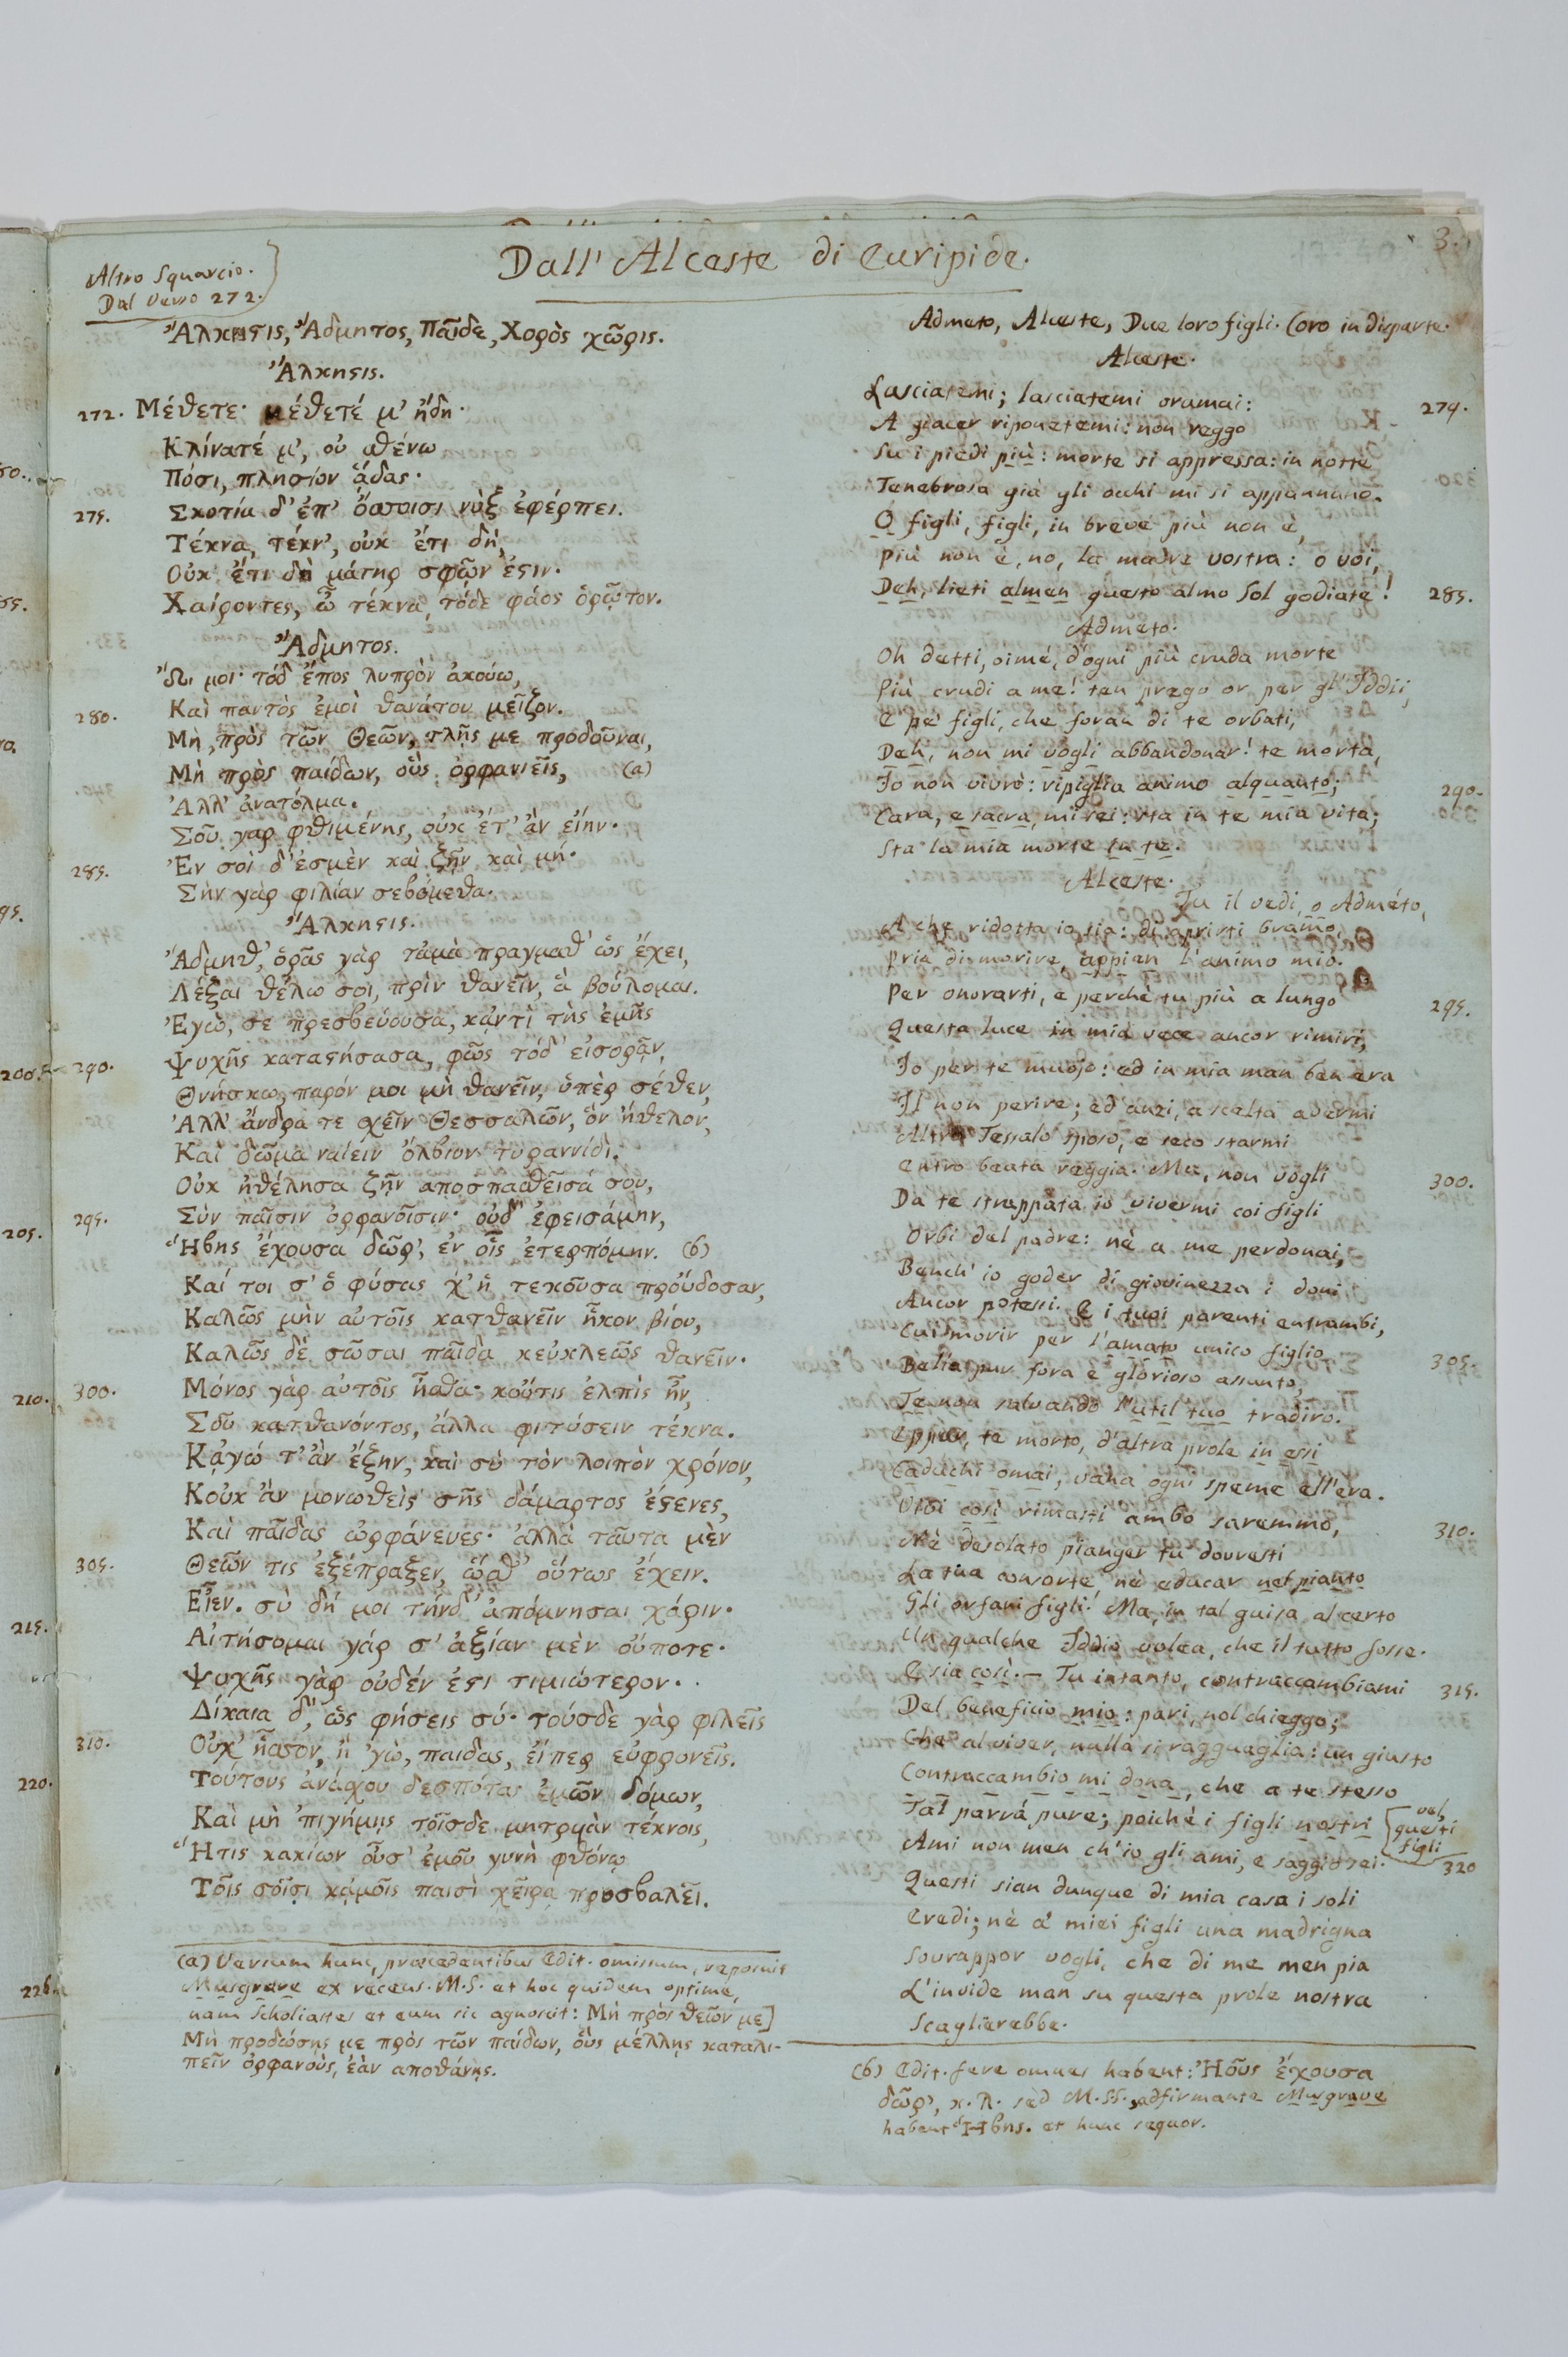 3.
Dall' Alceste di Euripide.
Altro Squarcio.
Dal Verso 272.
Ἄλκηστις, Ἄδμητος, Παῖδε, Χορὸς χῶρις.
Ἄλκηστις.
272. Μέθετε· μέθετέ μ' ἤδη·
Κλίνατέ μ', οὐ σθένω
Πόσι, πλησίον ᾅδας·
275. Σκοτία δ' ἐπ' ὄσσοισι νὺξ ἐφέρπει.
Τέκνα, τέκν', οὐκ ἔτι δὴ,
Οὐκ ἔτι δὴ μάτηρ σφῶν ἔστιν·
Χαίροντες, ὦ τέκνα, τόδε φάος ὁρῷτον.
Ἄδμητος.
Ὤι μοι· τόδ' ἔπος λυπρὸν ἀκούω,
280. Καὶ παντὸς ἐμοὶ θανάτου μεῖζον.
Μὴ, πρὸς τῶν Θεῶν, τλῇς με προδοῦναι,
Μὴ πρὸς παίδων, οὓς ὀρφανιεῖς, (a)
Ἀλλ' ἀνατόλμα.
Σοῦ γαρ φθιμένης, οὐκ ἔτ' ἂν εἴην·
285. Ἐν σοὶ δ' ἐσμὲν καὶ ζῆν καὶ μή·
Σὴν γὰρ φιλίαν σεβόμεθα.
Ἄλκηστις.
Ἄδμηθ', ὁρᾷς γὰρ τἀμὰ πραγμαθ' ὡς ἔχει,
Λέξαι θέλω σοι, πρὶν θανεῖν, ἃ βούλομαι.
Ἐγὼ, σε πρεσβεύουσα, κᾀντὶ τῆς ἐμῆς
290. Ψυχῆς καταστήσασα, φῶς τόδ' εἰσορᾷν,
Θνήσκω, παρόν μοι μὴ θανεῖν, ὑπὲρ σέθεν,
Ἀλλ' ἄνδρα τε σχεῖν Θεσσαλῶν, ὃν ἤθελον,
Καὶ δῶμα ναίειν ὄλβιον τυραννίδι.
Οὐκ ἠθέλησα ζῆν αποσπασθεῖσά σου,
295. Σὺν παῖσιν ὀρφανοῖσιν· οὐδ' ἐφεισάμην,
Ἥβης ἔχουσα δῶρ', ἐν οἷς ἐτερπόμην. (b)
Καί τοι σ' ὁ φύσας χ' ἡ τεκοῦσα προὔδοσαν,
Καλῶς μὴν αὐτοῖς κατθανεῖν ἧκον βίου,
Καλῶς δὲ σῶσαι παῖδα κεὐκλεῶς θανεῖν·
300. Μόνος γὰρ αὐτοῖς ἦσθα· κοὔτις ἐλπὶς ἦν,
Σοῦ κατθανόντος, ἄλλα φιτύσειν τέκνα.
Κᾀγώ τ' ἂν ἔζην, καὶ σὺ τὸν λοιπὸν χρόνον,
Κοὐκ ἂν μονωθεὶς σῆς δάμαρτος ἔστενες,
Καὶ παῖδας ὠρφάνευες· ἀλλὰ ταῦτα μὲν
305. Θεῶν τις ἐξέπραξεν, ὥσθ' οὕτως ἔχειν.
Εἶεν. σὺ δή μοι τήνδ' ἀπόμνησαι χάριν·
Αἰτήσομαι γάρ σ' ἀξίαν μὲν οὔποτε·
Ψυχῆς γὰρ οὐδέν ἐστι τιμιώτερον·
Δίκαια δ', ὡς φήσεις σύ· τούσδε γὰρ φιλεῖς
310. Οὐχ' ἧσσον, ἢ 'γὼ, παιδας, εἴπερ εὐφρονεῖς.
Τούτους ἀνάσχου δεσπότας ἐμῶν δόμων,
Καὶ μὴ 'πιγήμῃς τοῖσδε μητρυιὰν τέκνοις,
Ἥτις κακίων οὖσ' ἐμοῦ γυνὴ φθόνῳ
Τοῖς σοῖσι κᾀμοῖς παισὶ χεῖρα προσβαλεῖ.
(a) Versum hunc, præcedentibus Edit. omissum, reposuit
Musgrave ex recens. M.S. et hoc quidem optime,
nam Scholiastes et eum sic agnoscit: Μὴ πρὸς θεῶν με]
Μὴ προδώσῃς με πρὸς τῶν παίδων, οὓς μέλλῃς καταλι-
πεῖν ὀρφανοὺς, ἐὰν αποθάνῃς.
Admeto, Alceste, Due loro figli. Coro in disparte.
Alceste.
Lasciatemi; lasciatemi oramai: 279.
A giacer riponetemi: non reggo
Su i piedi più: morte si appressa: in notte
Tenebrosa già gli occhi mi si appannano.
O figli, figli, in breve più non è,
Più non è, no, la madre vostra: o voi,
Deh, lieti almen questo almo Sol godiate! 285.
Admeto.
Oh detti, oimé, d'ogni più cruda morte
Più crudi a me! ten prego or per gl'Iddii,
E pe' figli, che foran di te orbati,
Deh, non mi vogli abbandonar! te morta,
Io non vivrò: ripiglia animo alquanto; 290.
Cara, e sacra, mi sei: sta in te mia vita;
Sta la mia morte in te.
Alceste.
Tu il vedi, o Adméto,
A che ridotta io sia: di aprirti bramo,
Pria di morire, appien l'animo mio.
Per onorarti, e perchè tu più a lungo 295.
Questa luce in mia vece ancor rimiri,
Io per te muojo: ed in mia man ben era
Il non perire; ed anzi, a scelta avermi
Altro Tessalo sposo, e seco starmi
Entro beata reggia. Ma, non vogli 300.
Da te strappata io vivermi coi figli
Orbi del padre: nè a me perdonai,
Bench' io goder di giovinezza i doni
Ancor potessi. E i tuoi parenti entrambi,
Cui morir per l'amato unico figlio 305.
Bella pur fora e glorioso assunto,
Te non salvando l'util tuo tradiro.
Eppur, te morto, d'altra prole in essi
Caduchi omai, vana ogni speme ell'era.
Vivi così rimasti ambo saremmo, 310.
Nè desolato pianger tu dovresti
La tua consorte, nè educar nel pianto
Gli orfani figli! Ma, in tal guisa al certo
Un qualche Iddio volea, che il tutto fosse.
E sia così. — Tu intanto, contraccambiami 315.
Del beneficio mio: pari, nol chieggo;
Che al viver, nulla si ragguaglia: un giusto
Contraccambio mi dona, che a te stesso
Tal parrà pure; poichè i figli nostri
vel
questi
figli
Ami non men ch'io gli ami, e saggio sei. 320
Questi sian dunque di mia casa i soli
Eredi; nè a' miei figli una madrigna
Sovrappor vogli, che di me men pia
L'invide man su questa prole nostra
Scaglierebbe.
(b) Edit. fere omnes habent: Ἡοῦς ἔχουσα
δῶρ', κ.λ. sed M.SS. adfirmante Musgrave
habent Ἥβης. et hunc sequor.
200.
205.
210.
215.
220.
226.